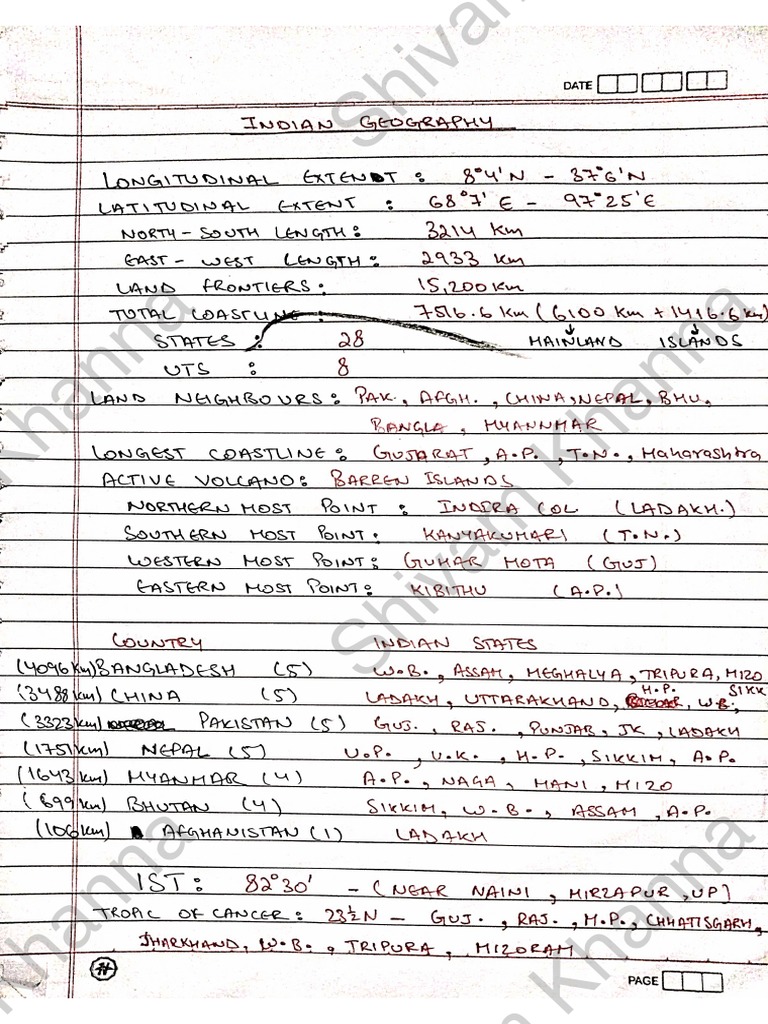 DATE
INDIAN GEOGRAPHY
LONGITUDINAL EXTENT : 8°4'N - 37°6'N
LATITUDINAL EXTENT : 68°7'E - 97°25'E
NORTH-SOUTH LENGTH : 3214 Km
EAST-WEST LENGTH : 2933 Km
LAND FRONTIERS : 15,200 Km
TOTAL COASTLINE : 7516.6 Km (6100 Km + 1416.6 Km)
STATES : 28 MAINLAND ISLANDS
UTS : 8
LAND NEIGHBOURS : PAK., AFGH., CHINA, NEPAL, BHU,
BANGLA, MYANNMAR
LONGEST COASTLINE : GUJARAT, A.P., T.N., Maharashtra
ACTIVE VOLCANO : BARREN ISLANDS
NORTHERN MOST POINT : INDIRA COL (LADAKH.)
SOUTHERN MOST POINT : KANYAKUMARI (T.N.)
WESTERN MOST POINT : GUHAR MOTA (GUJ)
EASTERN MOST POINT : KIBITHU (A.P.)
COUNTRY INDIAN STATES
(4096 Km) BANGLADESH (5) W.B., ASSAM, MEGHALYA, TRIPURA, MIZO
(3488 Km) CHINA (5) LADAKH, UTTARAKHAND, H.P. W.B., SIKK
(3323 Km) PAKISTAN (5) GUJ., RAJ., PUNJAB, JK, LADAKH
(1751 Km) NEPAL (5) U.P., U.K., H.P., SIKKIM, A.P.
(1643 Km) MYANMAR (4) A.P., NAGA, MANI, MIZO
(699 Km) BHUTAN (4) SIKKIM, W.B., ASSAM, A.P.
(106 Km) AFGHANISTAN (1) LADAKH
IST : 82°30' - (NEAR NAINI, MIRZAPUR, UP)
TROPIC OF CANCER : 23½N - GUJ., RAJ., M.P., CHHATISGARH,
JHARKHAND, W.B., TRIPURA, MIZORAM
PAGE
Shivam Khanna